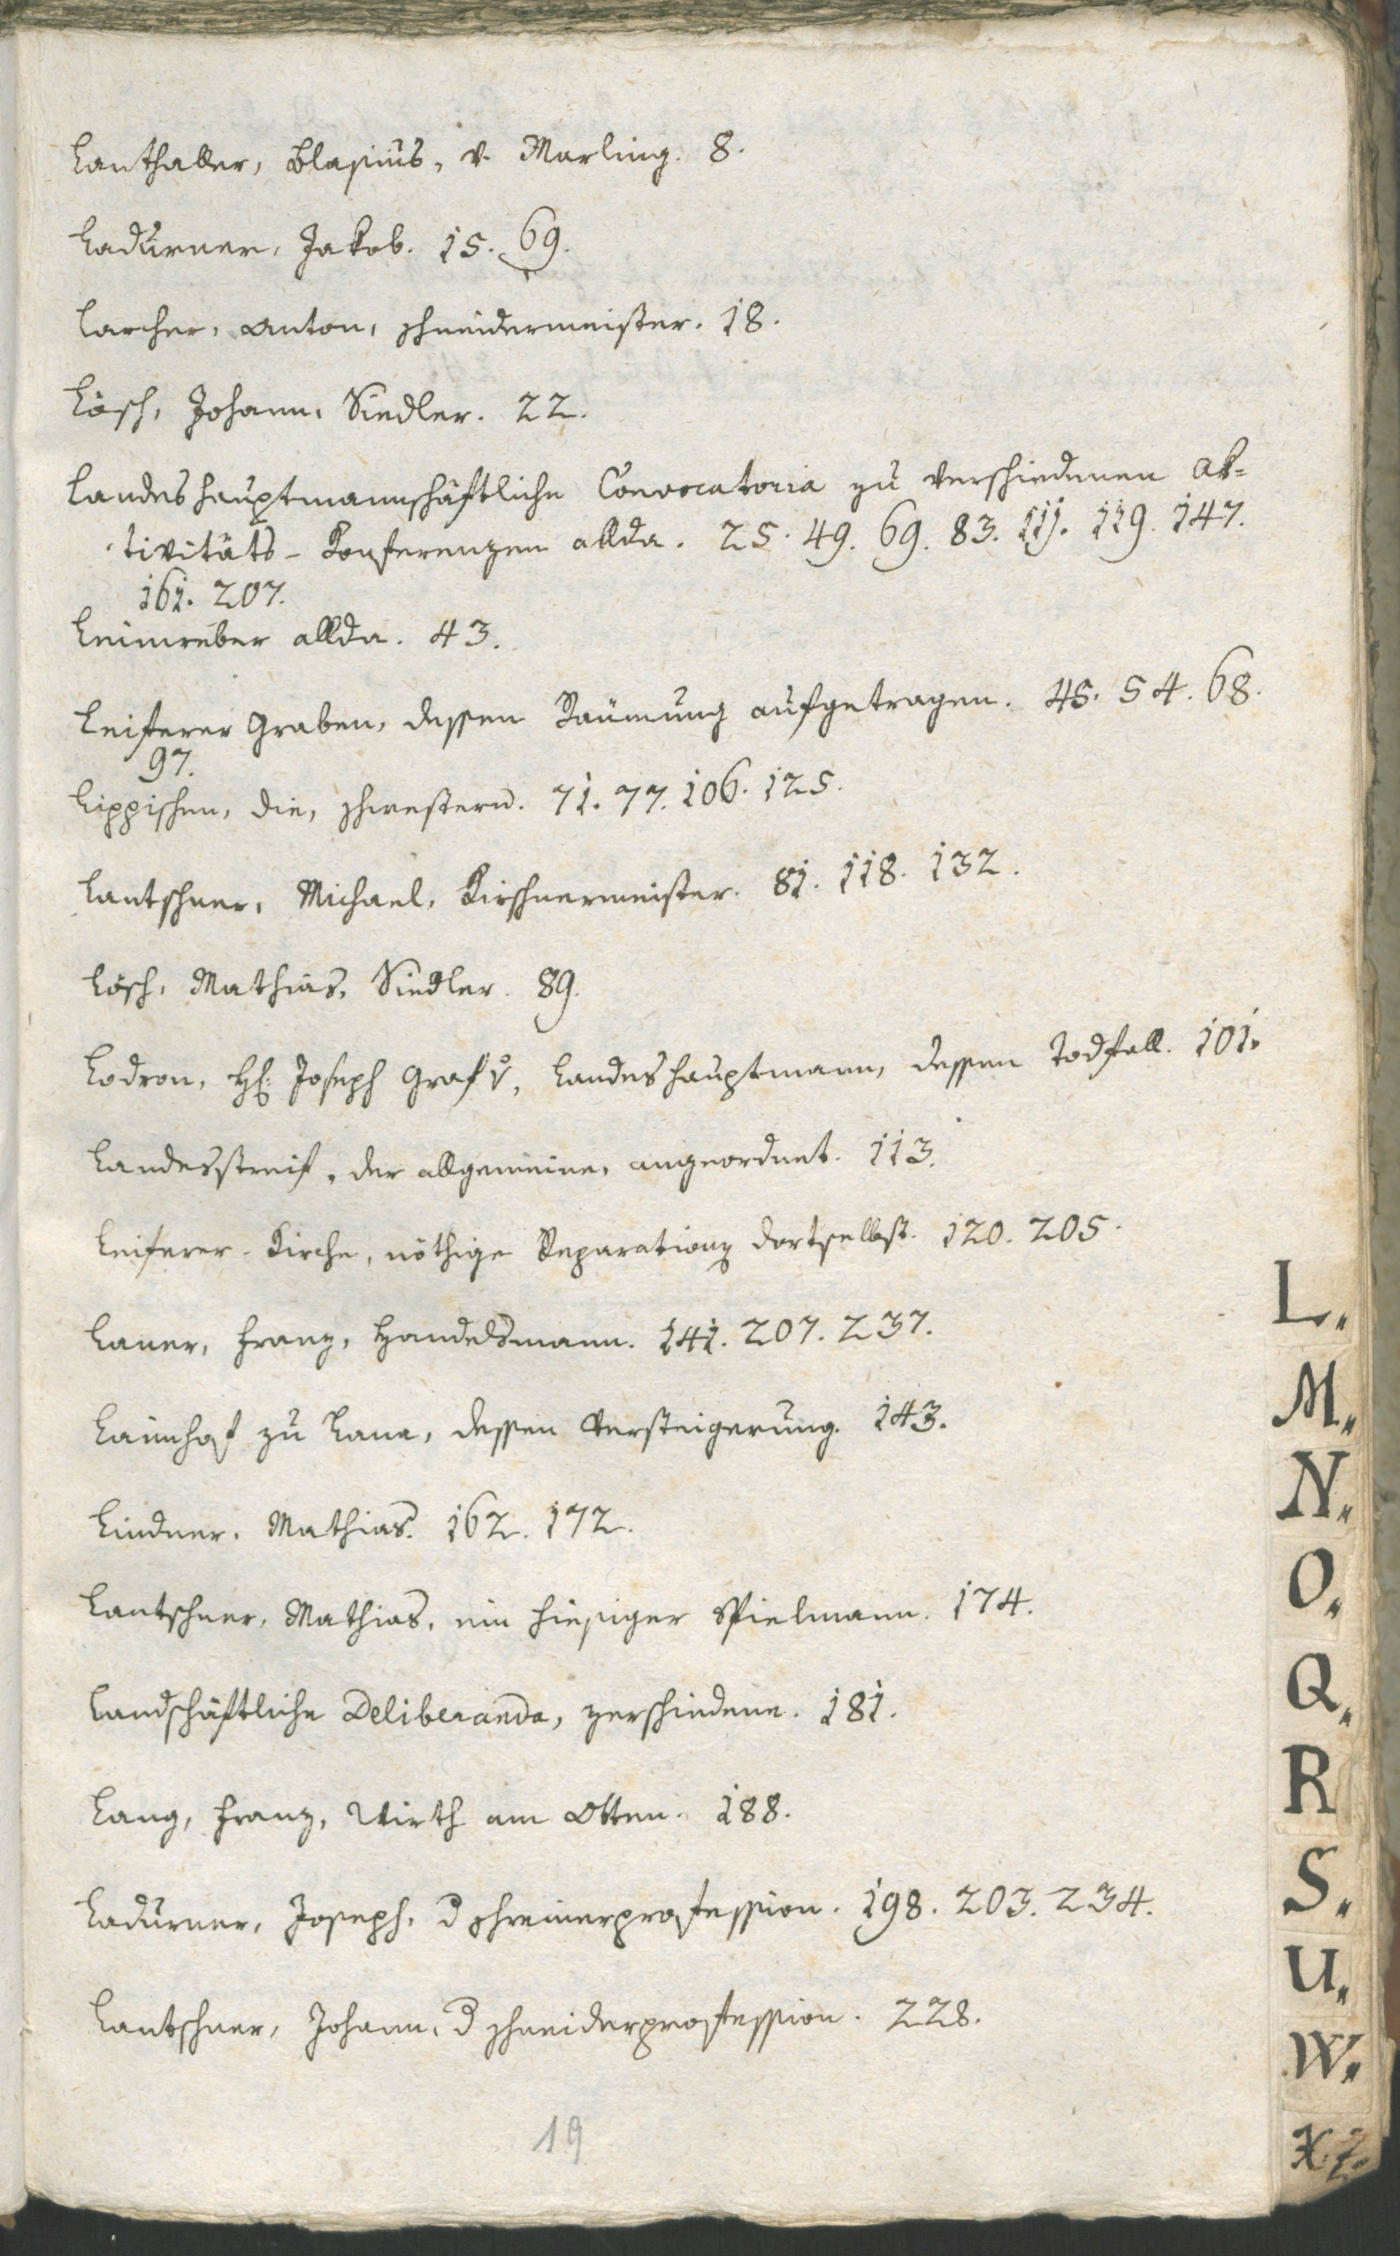 Lanthaller, Blasius, v. Marling. 8.
Ladurner, Jakob. 15. 69.
Larcher, Anton, Schneidermeister. 18.
Lösch, Johann, Siedler. 22.
Landeshauptmannschäftliche Convocatoria zu verschiedenen Ak-
tivitäts-Konferenzen allda. 25. 49. 69. 83. 111. 119. 147.
161. 207.
Leimreber allda. 43.
Leiferer Graben, dessen Räumung aufgetragen. 45. 54. 68.
97.
Lippischen, die, Schwestern. 71. 77. 106. 125.
Lantschner, Michael, Kirschnermeister. 81. 118. 132.
Lösch, Mathias, Siedler. 89.
Lodron, H: Joseph Graf v, Landeshauptmann, dessen Todfall. 101.
Landesstreif, der allgemeine, angeordnet. 113.
Leiferer-Kirche, nöthige Reparation dortselbst. 120. 205.
Laner, Franz, Handelsmann. 141. 207. 237.
Laimhof zu Lana, dessen Versteigerung. 143.
Lindner, Mathias. 162. 172.
Lantschner, Mathias, ein hiesiger Spielmann. 174.
Landschäftliche Deliberanda, zerschiedene. 181.
Lang, Franz, Wirth am Otten. 188.
Ladurner, Joseph, d Schreinerprofession. 198. 203. 234.
Lantschner, Johann, d Schneiderprofession. 228.
19
L.
M.
N.
O.
Q.
R
S.
U.
W.
X.Z.